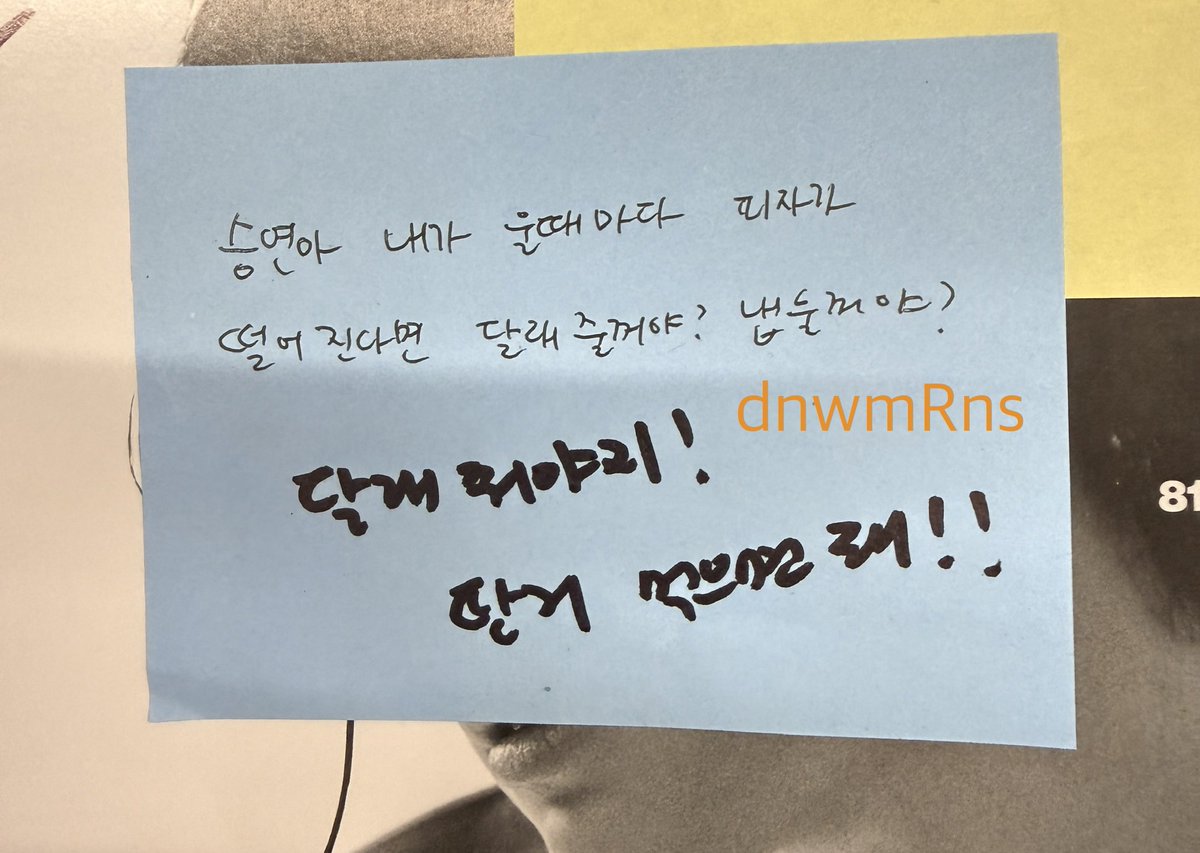 승연아 내가 울때마다 피자가
떨어진다면 달래줄꺼야? 냅둘꺼야?
dnwmRns
달래줘야지!
단거 먹으면 돼!!
8t